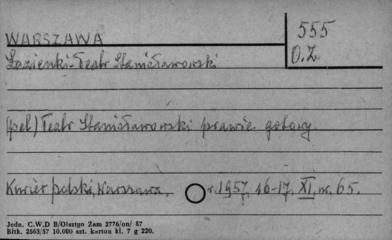 WARSZAWA
555
O.Z.
Łazienki-Teatr Stanisławowski
(pel) Teatr Stanisławowski prawie gotowy.
Kurier polski, Warszawa, r. 1957, 16-17. XI, nr. 65.
Jedn. C.W.D B/Olsztyn Zam 2776/on/ 57
Bltk. 2563/57 10.000 szt. karton kl. 7 g 220.